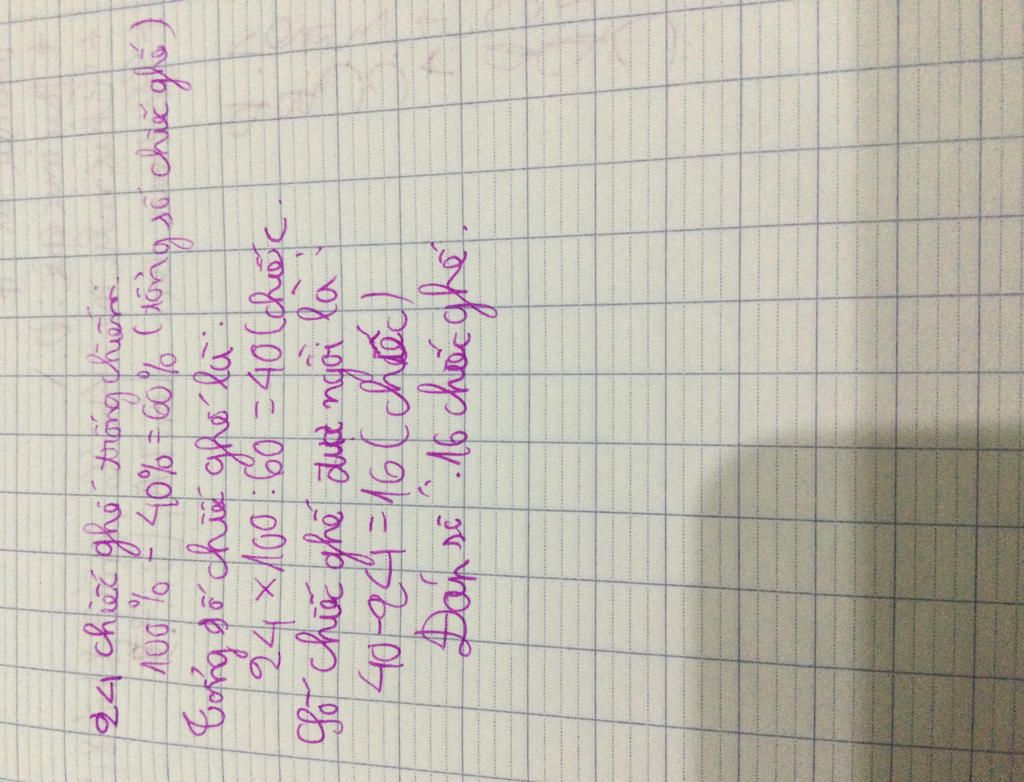 24 chiếc ghế trống chiếm:
100% - 40% = 60% (tổng số chiếc ghế)
Tổng số chiếc ghế là:
24 x 100 : 60 = 40 (chiếc
Số chiếc ghế được ngồi là:
40 - 24 = 16 (chiếc)
Đáp số: 16 chiếc ghế.